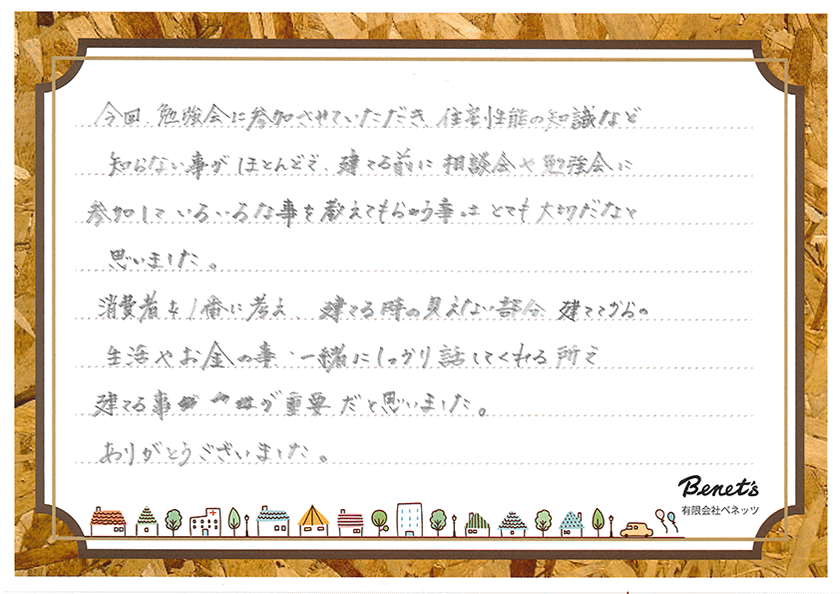 今回、勉強会に参加させていただき、住宅性能の知識など
知らない事がほとんどで、建てる前に相談会や勉強会に
参加していろいろな事を教えてもらう事はとても大切だなと
思いました。
消費者を1番に考え、建てる時の見えない部分、建ててからの
生活やお金の事、一緒にしっかり話してくれる所で
建てる事が 重要だと思いました。
ありがとうございました。
Benet's
有限会社ベネッツ